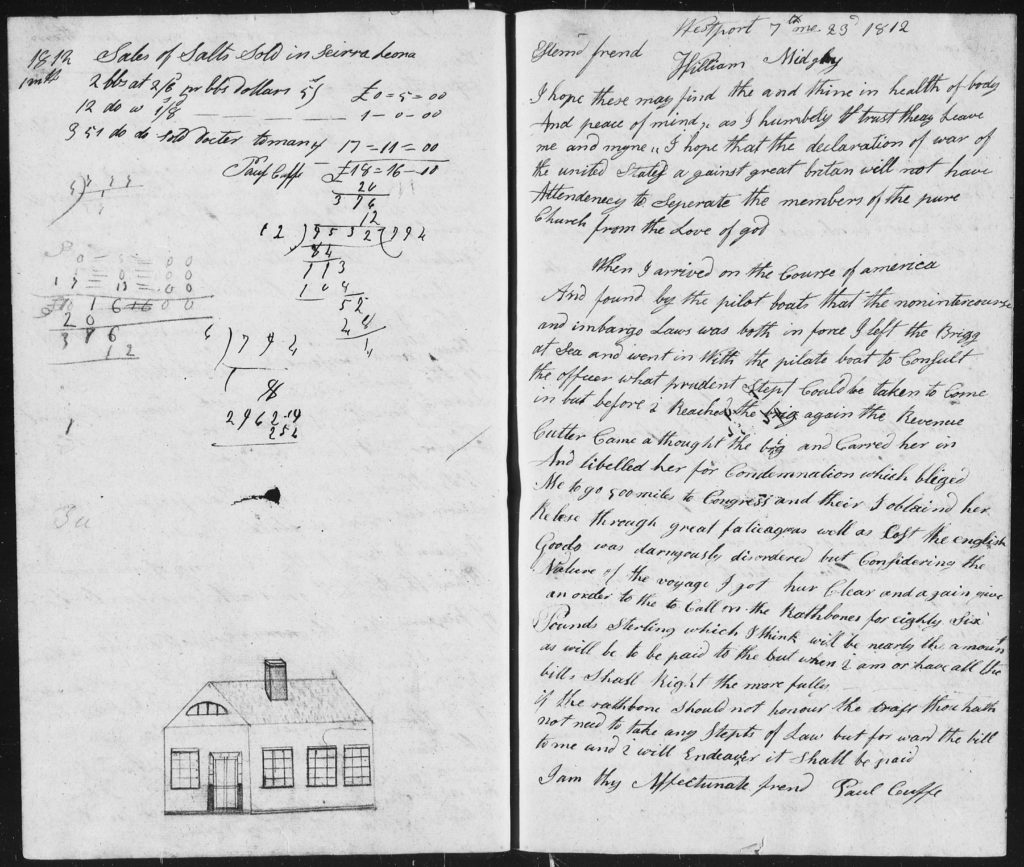 1812 Sales of Salts Sold in Seirra Leona
1 mth
2 bbs at 2/6 pr bbs dollars £0=5=00
12 do @ 1/8 1-0-00
351 do do sold Docter 17=11=00
Paul Cuffe £18=16-00
20
376
12
12 ) 9532 ( 794
84
113
104
52
4
4 ) 794
2962
254
0 0
15 = 13 = 00
16 16 00
20
376
12
1
Westport 7th mo 23d 1812
Esteemd frend
William Midgly
I hope these may find the and thine in health of body
And peace of mind, as I humbely trust theay Leave
me and myne, I hope that the declaration of war of
the united States a gainst great britan will not have
Attendenecy to Seperate the members of the pure
Church from the Love of god
When I arrived on the Course of america
And found by the pilot boats that the nonintercourse
and imbargo Laws was both in force I left the Brigg
at Sea and went in With the pilate boat to Consult
the officer what prudent Stept Could be taken to Come
in but before i Reached the brig again the Revenue
Cutter Came a thought the brig and Carred her in
And libelled her for Condemnation which bliged
Me to go 500 miles to Congress and their I obtaind her
Relese through great as well as Lost the english
Goods was darngously disordered but Considering the
Nature of the voyage I got hur Clear and a gain give
an order to the to Call on the Rathbones for eighty Six
Pounds Sterling which I think will be nearly the amount
as will be to be paid to the but when i am or have all the
bills Shall Right the more fuller
if the rathbone Should not honour the draft thou hath
not need to take any Stepts of Law but for ward the bill
to me and i will Endeaver it Shall be paid
I am thy Affectunate frend Paul Cuffe